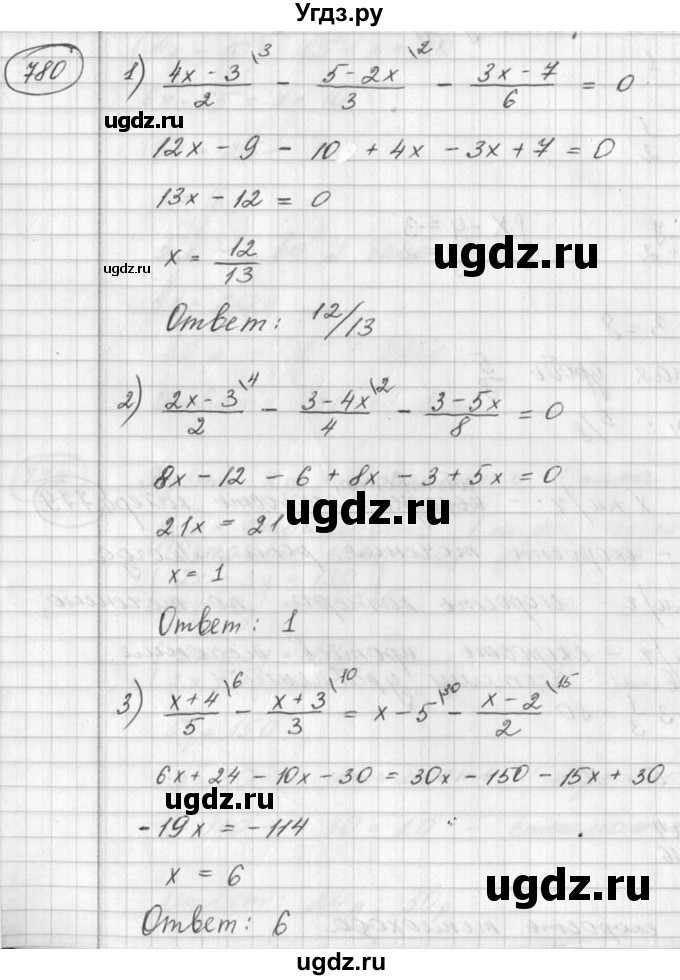 Угдз.ру
780
1) (4x - 3)/2 \3 - (5 - 2x)/3 \2 - (3x - 7)/6 = 0
ugdz.ru
12x - 9 - 10 + 4x - 3x + 7 = 0
13x - 12 = 0
ugdz.ru
x = 12/13
ugdz.ru
Ответ: 12/13
2) (2x - 3)/2 \4 - (3 - 4x)/4 \2 - (3 - 5x)/8 = 0
8x - 12 - 6 + 8x - 3 + 5x = 0
21x = 21
ugdz.ru
x = 1
Ответ: 1
3) (x + 4)/5 \6 - (x + 3)/3 \10 = x - 5 \30 - (x - 2)/2 \15
6x + 24 - 10x - 30 = 30x - 150 - 15x + 30
ugdz.ru
-19x = -114
x = 6
ugdz.ru
Ответ: 6